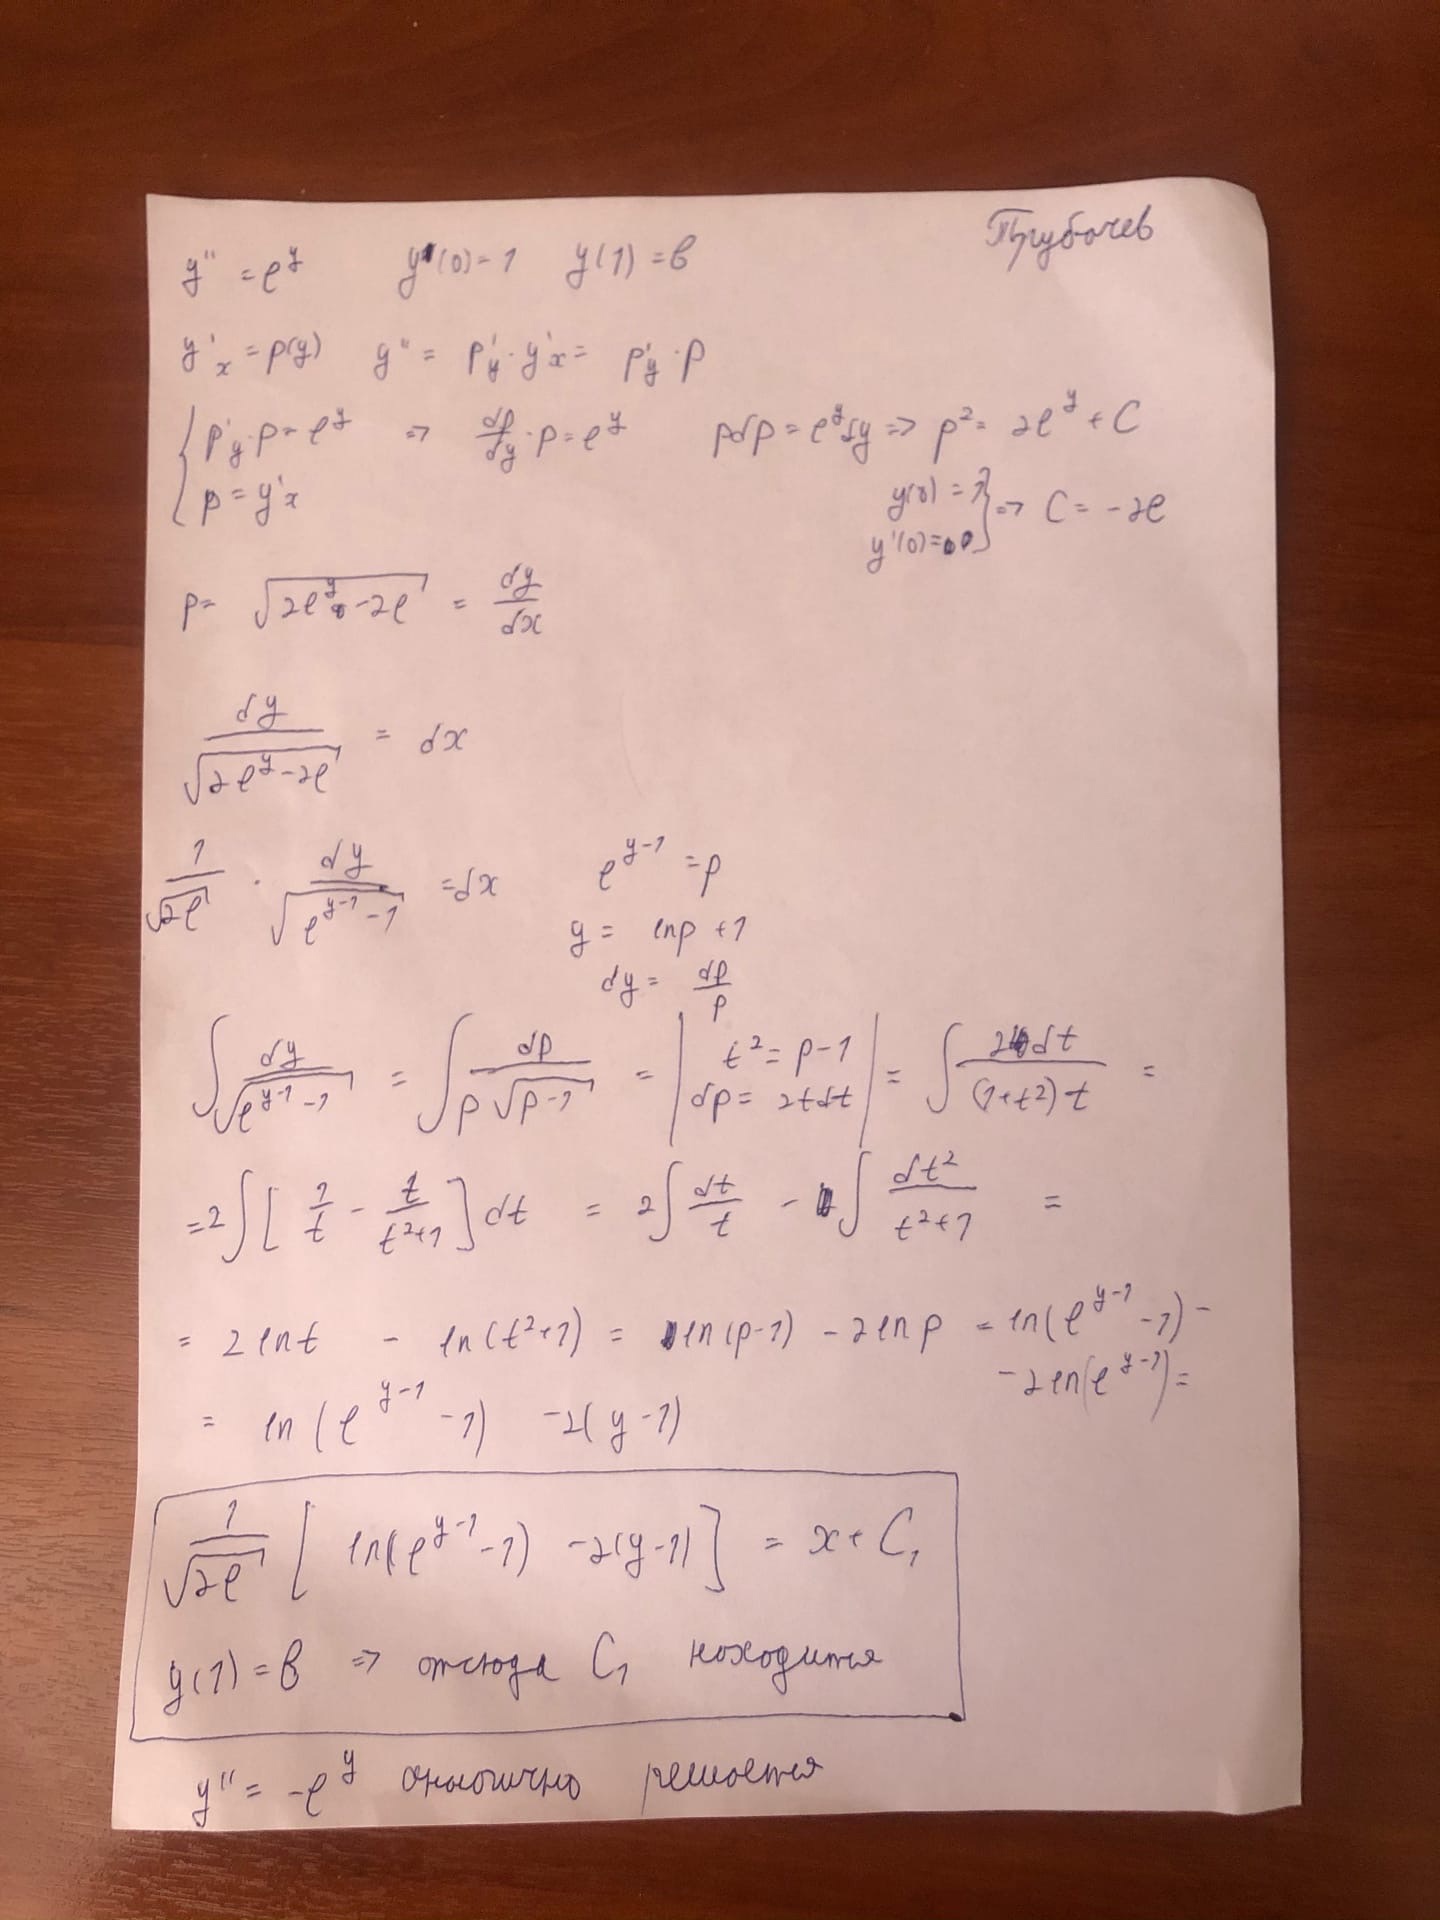 Трубочев
y'' = e^y y(0) = 1 y(1) = b
y'_x = p(y) y'' = p'_y · y'_x = p'_y · p
{ p'_y · p = e^y => dp/dy · p = e^y pdp = e^y dy => p² = 2e^y + C
p = y'_x
y(0) = 1
y'(0) = 0 } => C = -2e
p = √(2e^y - 2e) = dy/dx
dy/√(2e^y - 2e) = dx
1/√(2e) · dy/√(e^(y-1) - 1) = dx e^(y-1) = p
y = ln p + 1
dy = dp/p
∫ dy/√(e^(y-1) - 1) = ∫ dp/(p √(p-1)) = | t² = p-1 dp = 2t dt | = ∫ 2dt/((1+t²)t) =
= 2∫ [ 1/t - t/(t²+1) ] dt = 2∫ dt/t - ∫ dt²/(t²+1) =
= 2 ln t - ln(t²+1) = ln(p-1) - 2 ln p = ln(e^(y-1) - 1) -
- 2 ln(e^(y-1)) =
= ln(e^(y-1) - 1) - 2(y-1)
1/√(2e) [ ln(e^(y-1) - 1) - 2(y-1) ] = x + C₁
y(1) = b => отсюда C₁ находится
y'' = -e^y аналогично решается